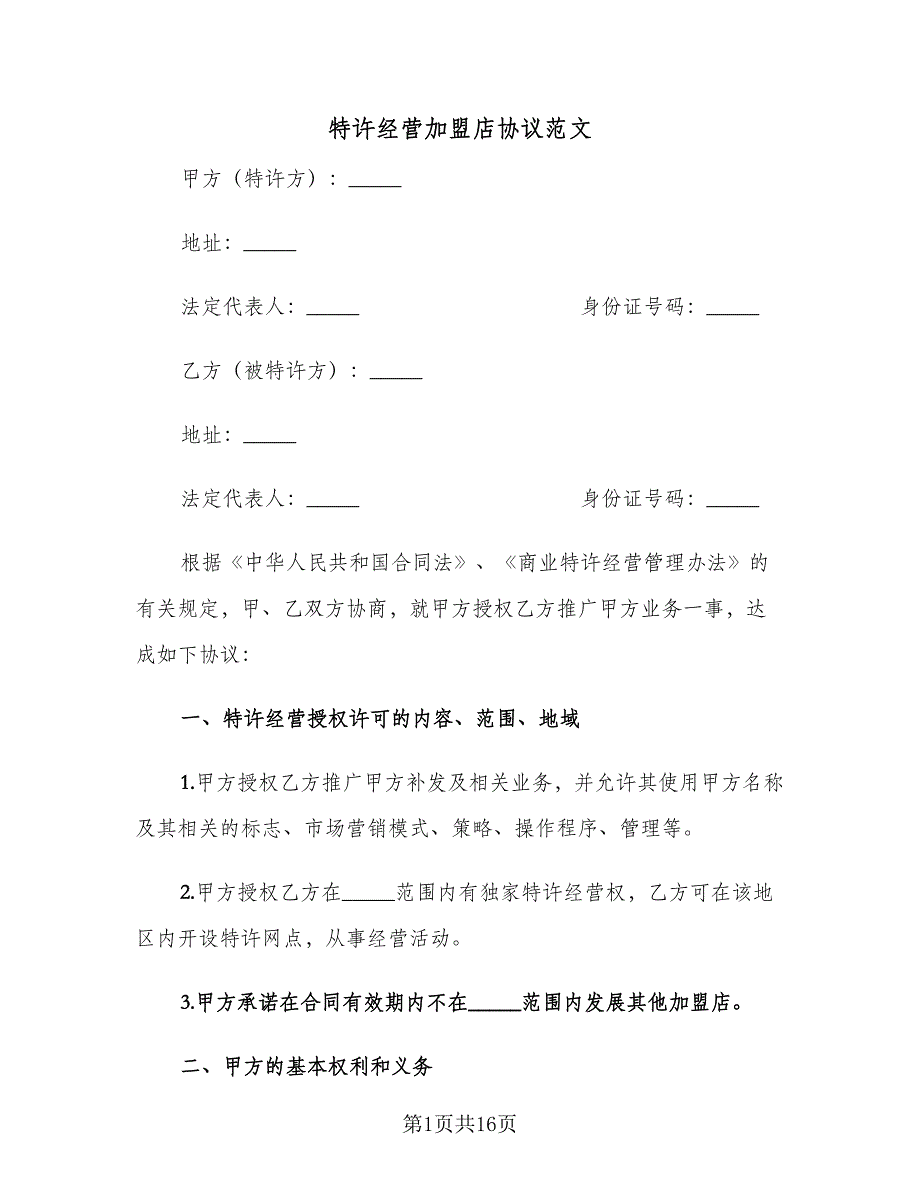 特许经营加盟店协议范文
甲方（特许方）：_____
地址：_____
法定代表人：_____ 身份证号码：_____
乙方（被特许方）：_____
地址：_____
法定代表人：_____ 身份证号码：_____
根据《中华人民共和国合同法》、《商业特许经营管理办法》的
有关规定，甲、乙双方协商，就甲方授权乙方推广甲方业务一事，达
成如下协议：
一、特许经营授权许可的内容、范围、地域
1.甲方授权乙方推广甲方补发及相关业务，并允许其使用甲方名称
及其相关的标志、市场营销模式、策略、操作程序、管理等。
2.甲方授权乙方在_____范围内有独家特许经营权，乙方可在该地
区内开设特许网点，从事经营活动。
3.甲方承诺在合同有效期内不在_____范围内发展其他加盟店。
二、甲方的基本权利和义务
第1页共16页